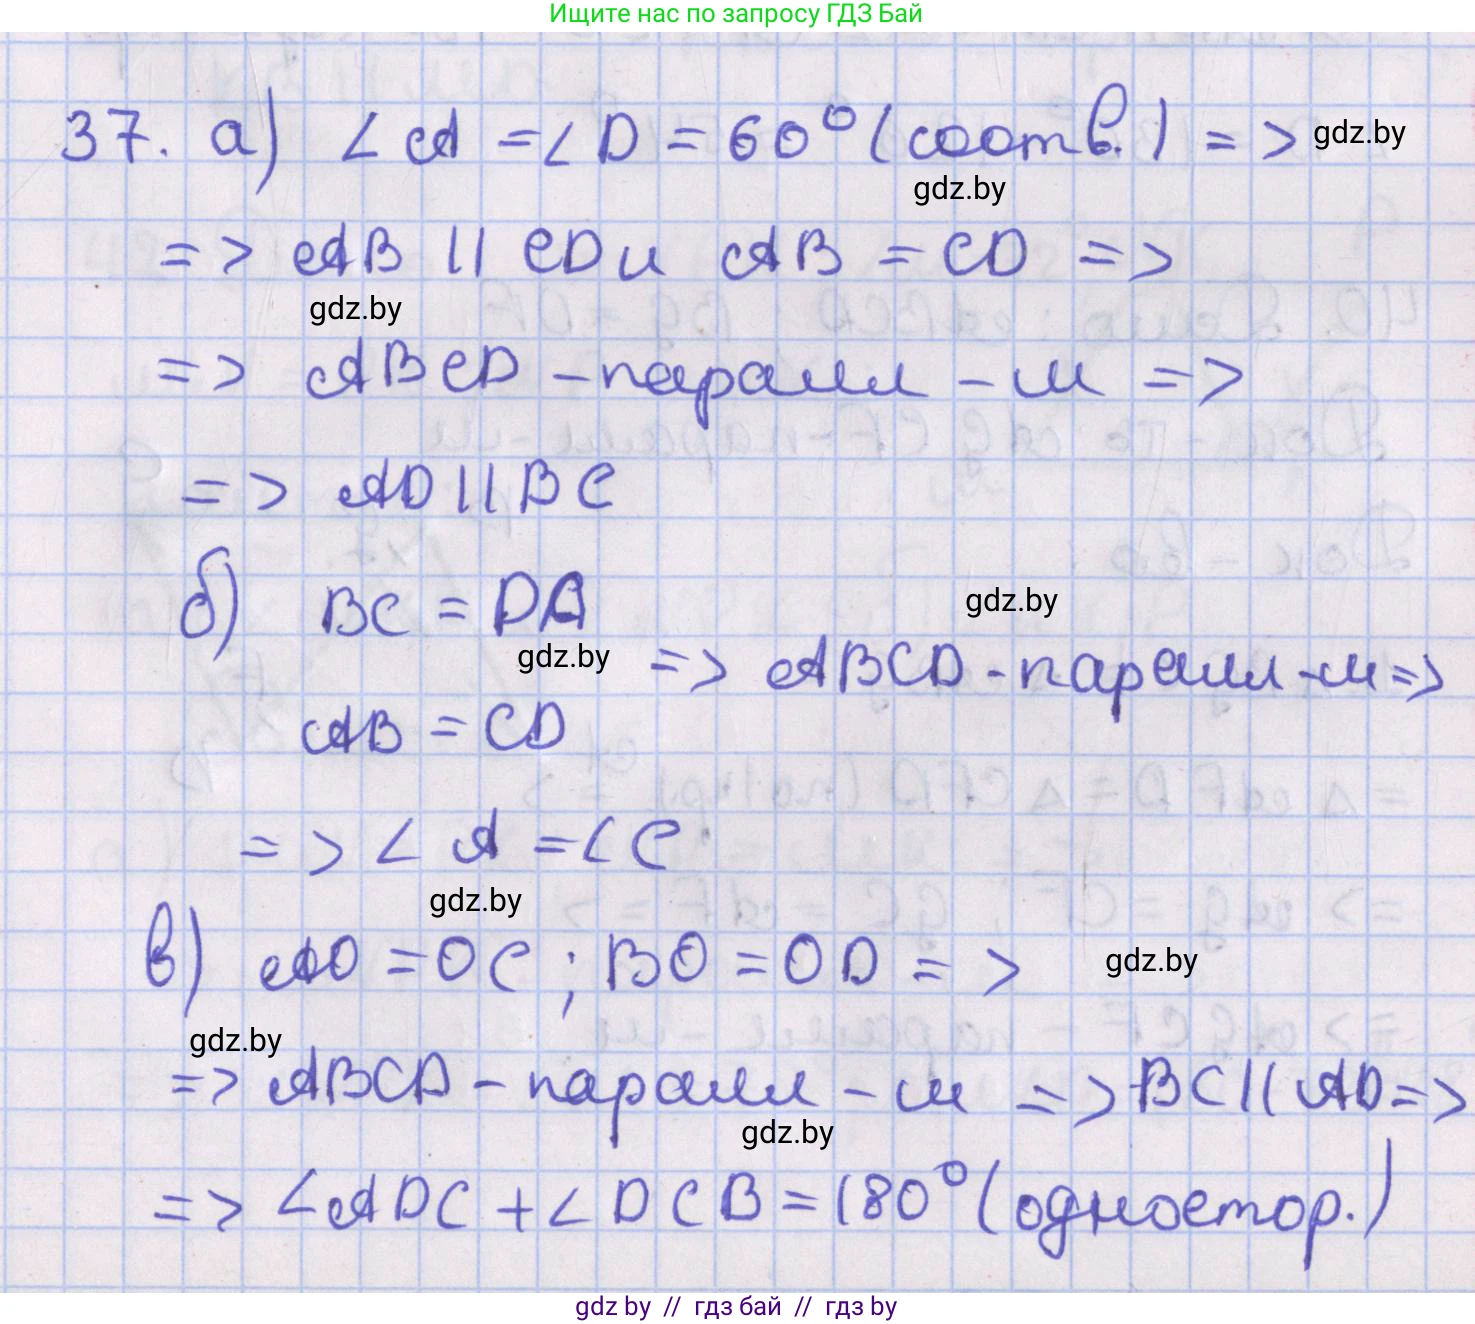 Ищите нас по запросу ГДЗ Бай
37. а) ∠A = ∠D = 60° (соотв.) =>
gdz.by
gdz.by
=> AB || CD и AB = CD =>
gdz.by
=> ABCD - паралл - м =>
=> AD || BC
б) BC = DA
gdz.by
gdz.by
=> ABCD - паралл - м =>
AB = CD
=> ∠A = ∠C
gdz.by
в) AO = OC ; BO = OD =>
gdz.by
gdz.by
=> ABCD - паралл - м => BC || AD =>
gdz.by
=> ∠ADC + ∠DCB = 180° (одностор.)
gdz by // гдз бай // гдз by